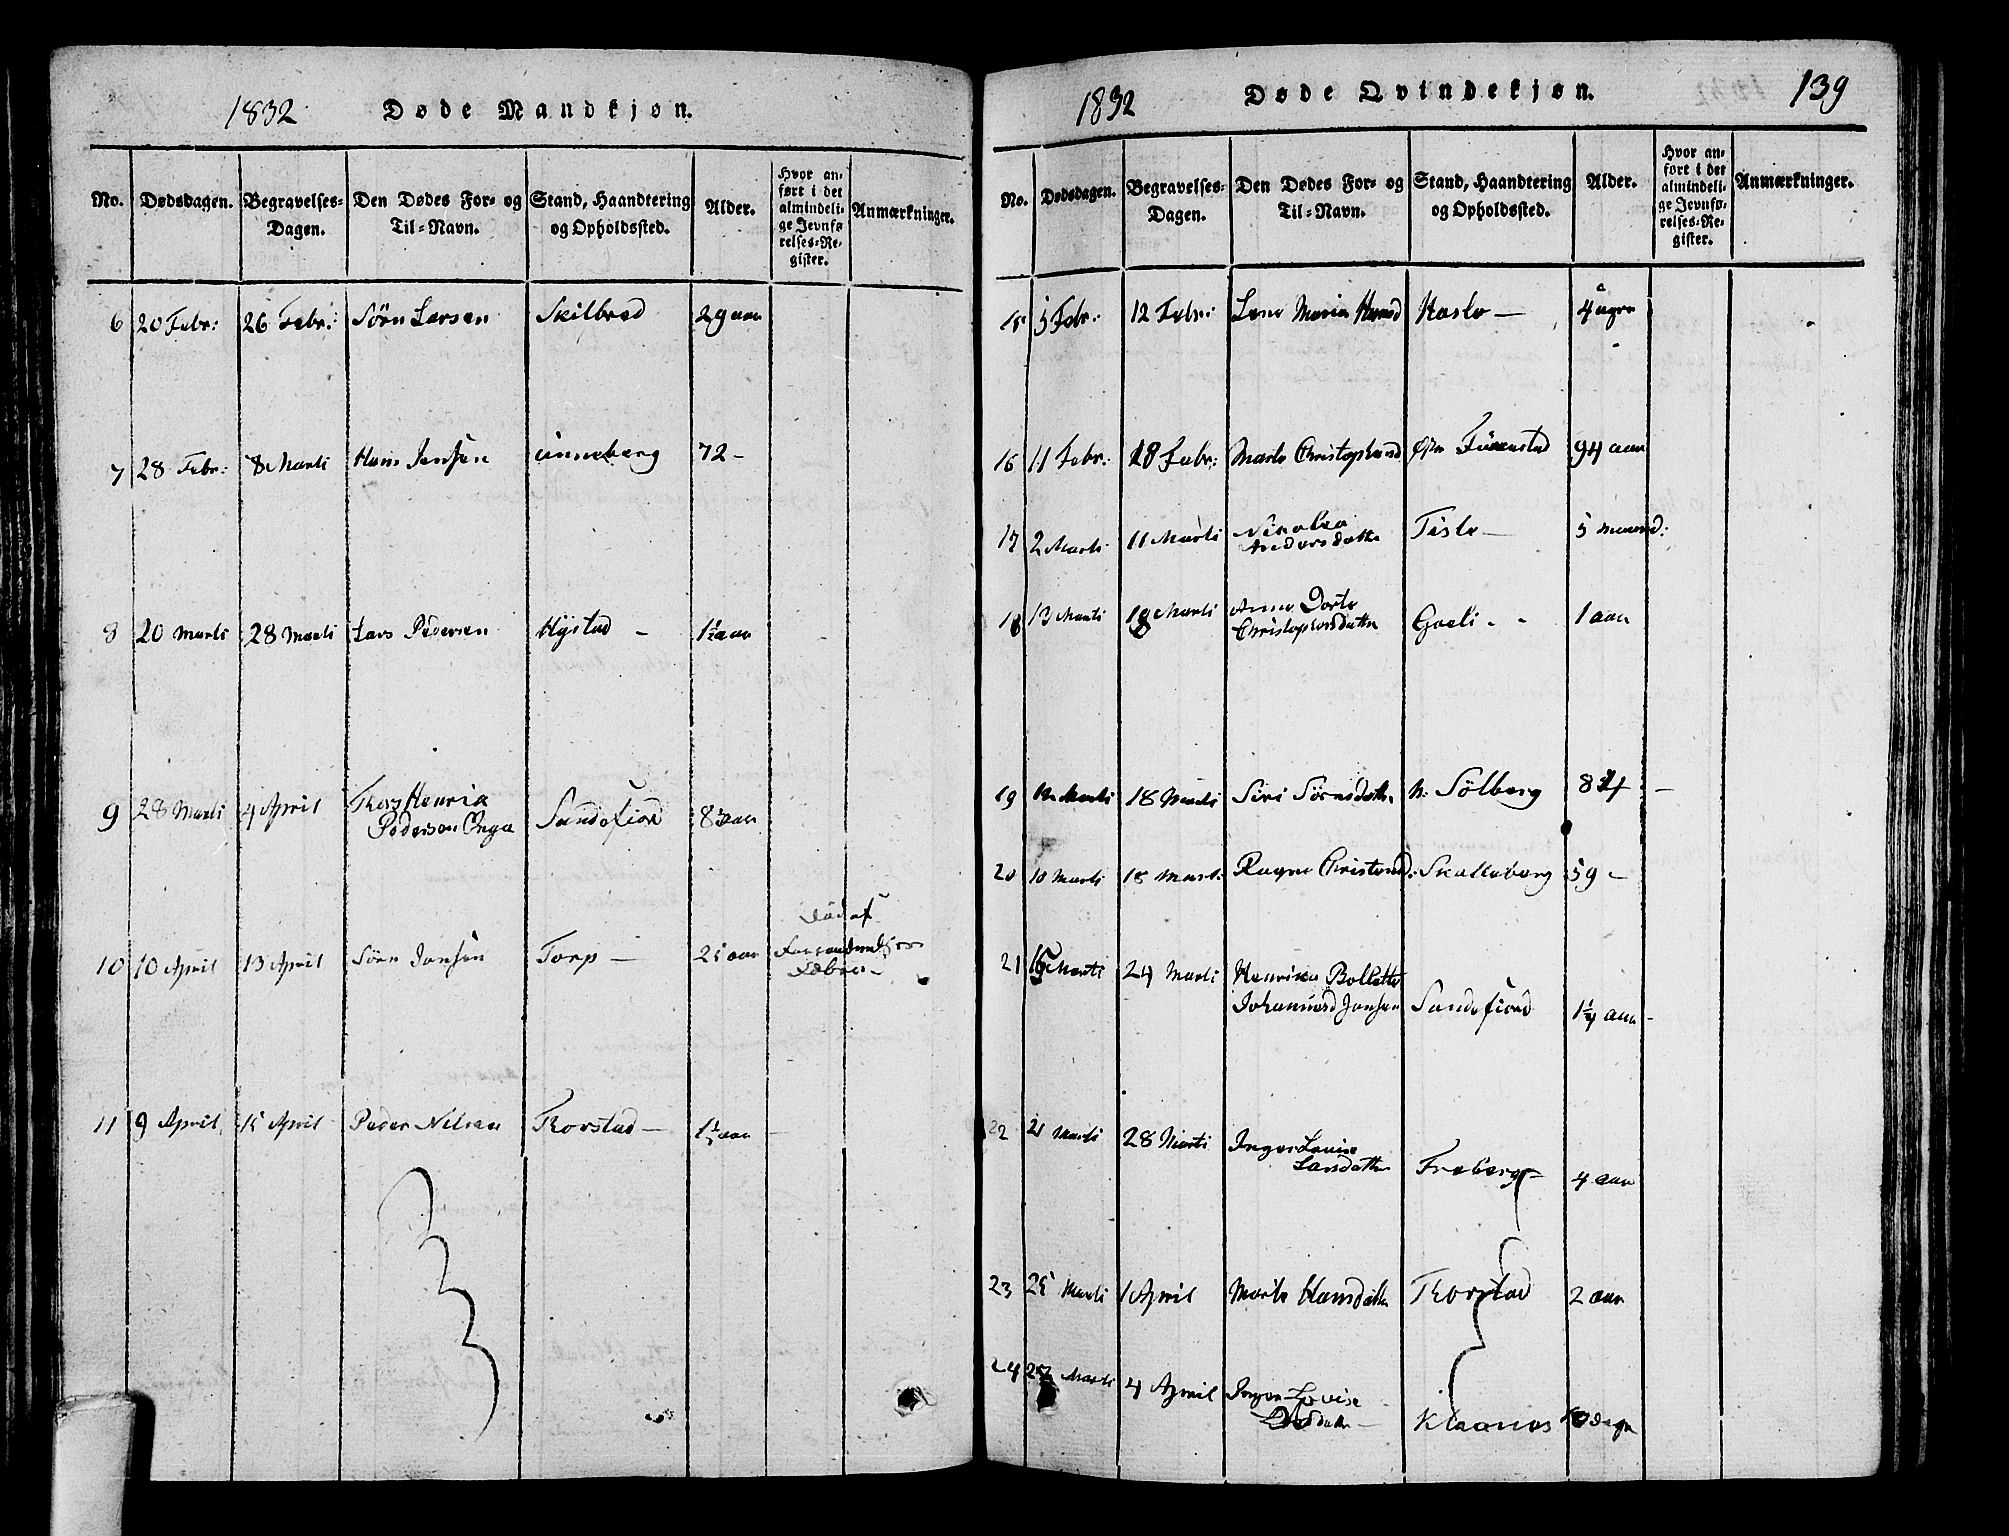 1832 Døde Mandkjøn.
No. Dødsdagen. Begravelses-Dagen. Den Dødes For- og Til-Navn. Stand, Haandtering og Opholdssted. Alder. Hvor anført i det almindelige Jevnførelses-Register. Anmærkninger.
6 20 Febr: 26 Febr: Sörn Larsen Skilbred 29 aar
7 28 Febr: 8 Marti Hans Jensen unneberg 72 -
8 20 Marti 28 Marti Lars Pedersen Hystad - 1½ aar
9 28 Marti 4 April Henrik
Pedersen Sandefiord aar
10 10 April 13 April Sörn Jansen Torp - aar
Död af
11 9 April 15 April Peder Nilsen Thorstad - aar
1832 Døde Qvindekjøn. 139
No. Dødsdagen. Begravelses-Dagen. Den Dødes For- og Til-Navn. Stand, Haandtering og Opholdssted. Alder. Hvor anført i det almindelige Jevnførelses-Register. Anmærkninger.
15 5 Febr: 12 Febr: Lene Maria Hansd Hasle - 4 uger
16 11 Febr: 18 Febr: Marte Christophersd 94 aar
17 2 Marti 11 Marti Nicolea
Andersdatter Tisle - 5 maaned:
18 13 Marti 18 Marti Anne Dorte
Christophersdatter Gocli - - 1 aar
19 Marti 18 Marti Siri Sörensdatter N: Sölberg -
20 10 Marti 18 Marti Ragne Christensd: Skalleberg 59 -
21 Marti 24 Marti Henrica Bollette
Johannesd Jansen Sandefiord 1¼ aar
22 21 Marti 28 Marti Inger Louise
Larsdatter Freberg - 4 aar
23 25 Marti 1 April Marte Hansdatter Thorstad 2 aar
24 Marti 4 April Inger Lovise
Klavnes dage